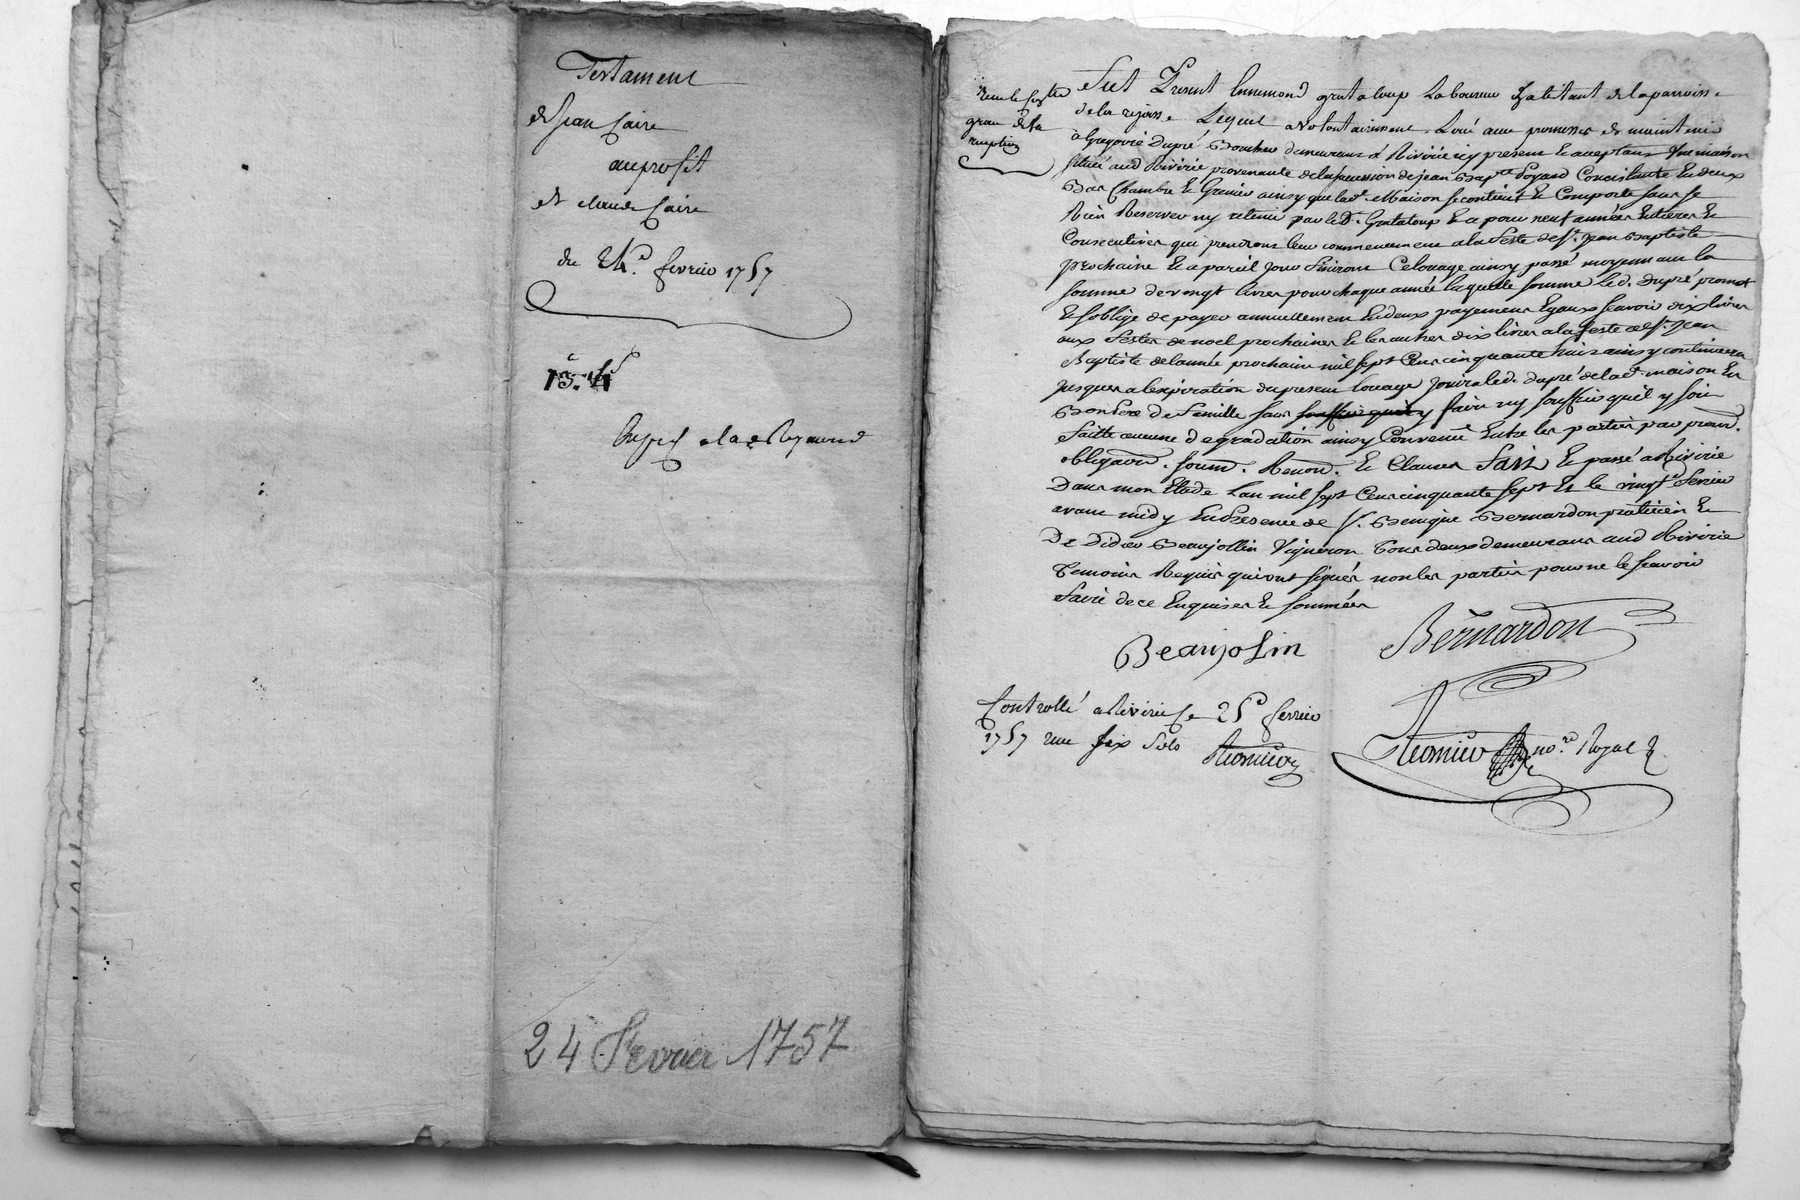 Testament
de Jean Caire
au profit
de claude Caire
du 24e. fevrier 1757
24 Fevrier 1757
Fut Present Ennemond grataloup Laboureur habitant de la parroisse
de la rejasse Lequel a volontairement Loüé avec promesses de maintenir
à Gregoire Dupré Boucher demeurant à Rivirie icy present et acceptant Une maison
situé aud Rivirie provenante de la succession de jean Bapte. Poyard Concistante En deux
Bas Chambre et Grenier ainsy que lade. Maison se contient et Comporte sans se
Rien Reserver ny retenir par led. Grataloup Et ce pour neuf années Entieres et
Consecutives qui prendront leur commencement a la feste de St. Jean Baptiste
prochaine et a pareil jour finiront Ce louage ainsy passé moyennant la
somme de vingt livres pour chaque année laquelle somme led. Dupré promet
et s'oblige de payer annuellement En deux payements Egaux scavoir dix livres
aux Festes de noel prochaines et les autres dix livres a la feste de St. Jean
Baptiste de lannée prochaine mil sept Cent cinquante huit ainsy continuera
jusques a lexpiration du present louage jouira led. dupré de lad. maison En
Bon Pere de Famille sans souffrir quil y faire ny souffrir qu'il y soit
faitte aucune degradation ainsy Convenu Entre les parties par prom.
obligaon. soum. Renon. et Clauses Fait et passé a Rivirie
Dans mon Etude L'an mil sept Cent cinquante sept Et le vingt fevrier
avant midy En Presence de Sr. Benigne Bernardon praticien et
De Didier Beaujollin Vigneron Tous deux demeurans aud Rivirie
Temoins Requis qui ont signés non les parties pour ne le scavoir
faire de ce Enquises et sommées
Beaujolin Bernardon
Controllé a Riviriё le 25e fevrier
1757 reçu six sols
nore. Royal